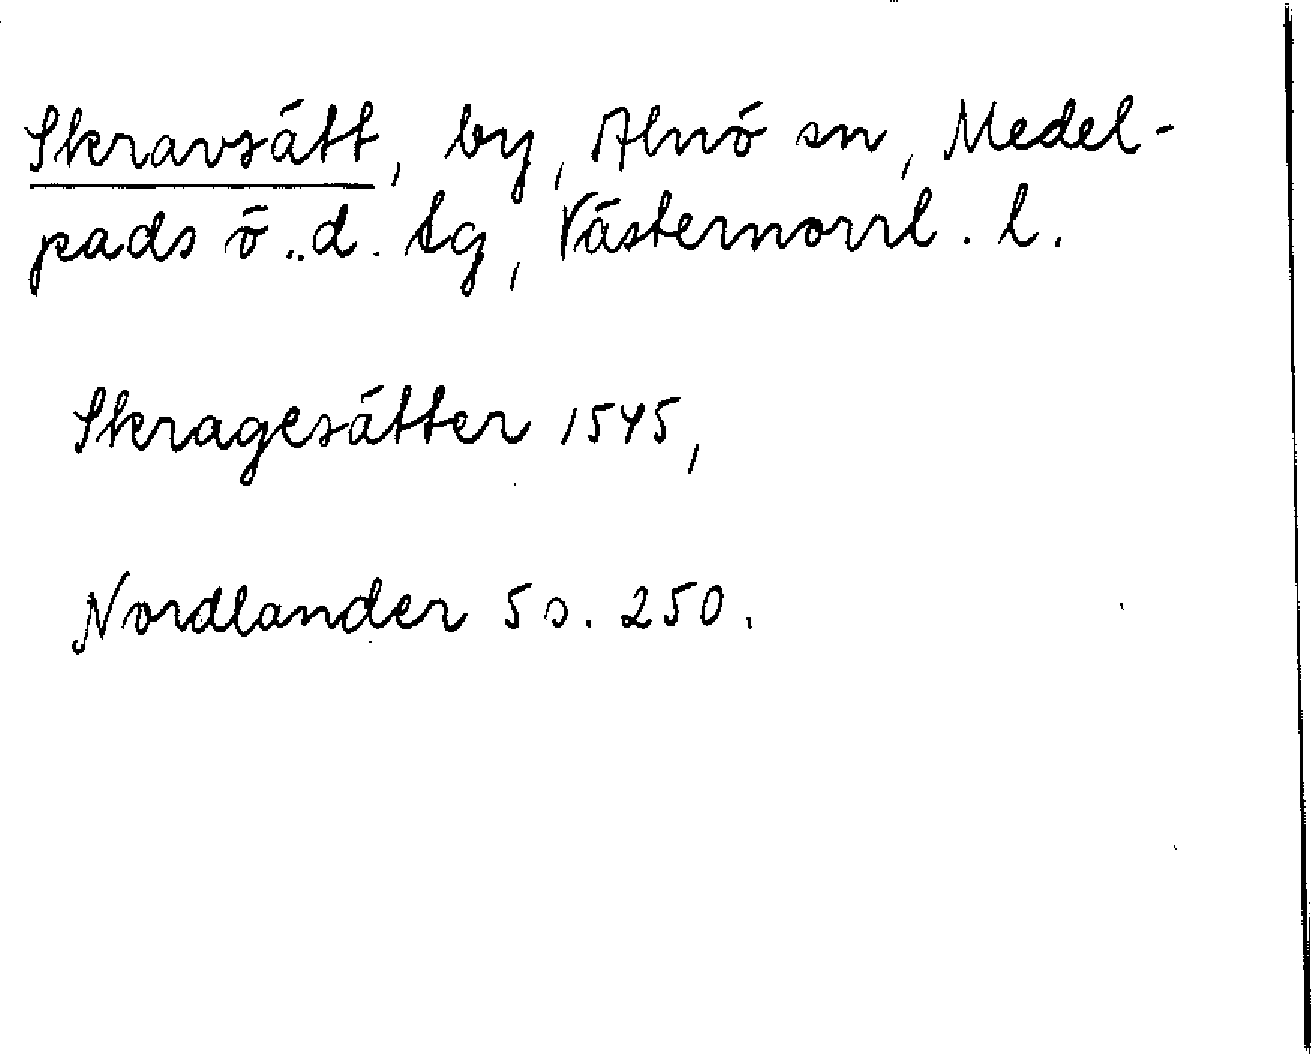 Skravsätt, by, Alnö sn, Medel-
pads ö..d. tg, Västernorrl. l.
Skragesätter 1545,
Nordlander 5 s. 250.